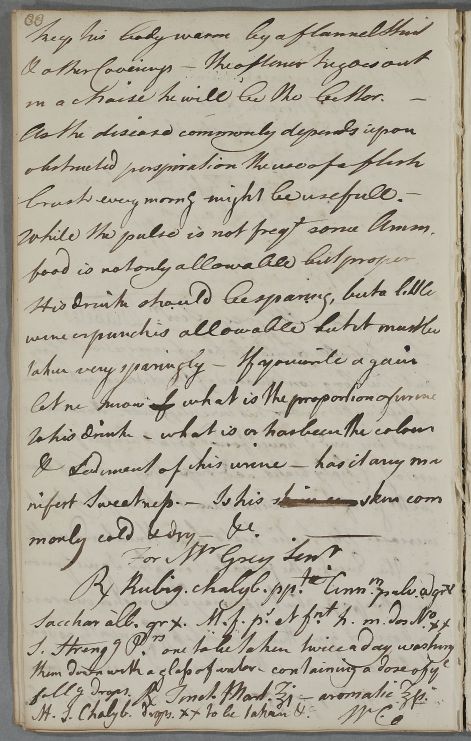 88
keep his body warm by a flannel Shirt
& other Coverings – The oftener he goes out
in a chaise he will be the better. –
As the disease commonly depends upon
obstructed perspiration the use of a flesh
brush every morng might be usefull. –
While the pulse is not freqt some Anim.
food is not only allowable but proper
His drink should be sparing, but a little
wine or punch is allowable but it must be
taken very sparingly – If you write again
let me know what is the proportion of urine
to his drink – what is or has been the colour
& Sediment of his urine – has it any ma
nifest Sweetness. – Is his skin com
monly cold & dry – &c.
For Mr Grey Senr
℞ Rubig. chalyb. ppt Cinn. pulv. a gr
Sacchar alb. gr x. M. f. p. et ft. h. m. dos No xx
S. Streng g Prs one to be taken twice a day washing
them down with a glass of water containing a dose of ye
follg drops. ℞ Tinct. Mart. ʒj – aromatic ʒss.
M. S. Chalyb. drops. xx to be taken &c.
W. C.